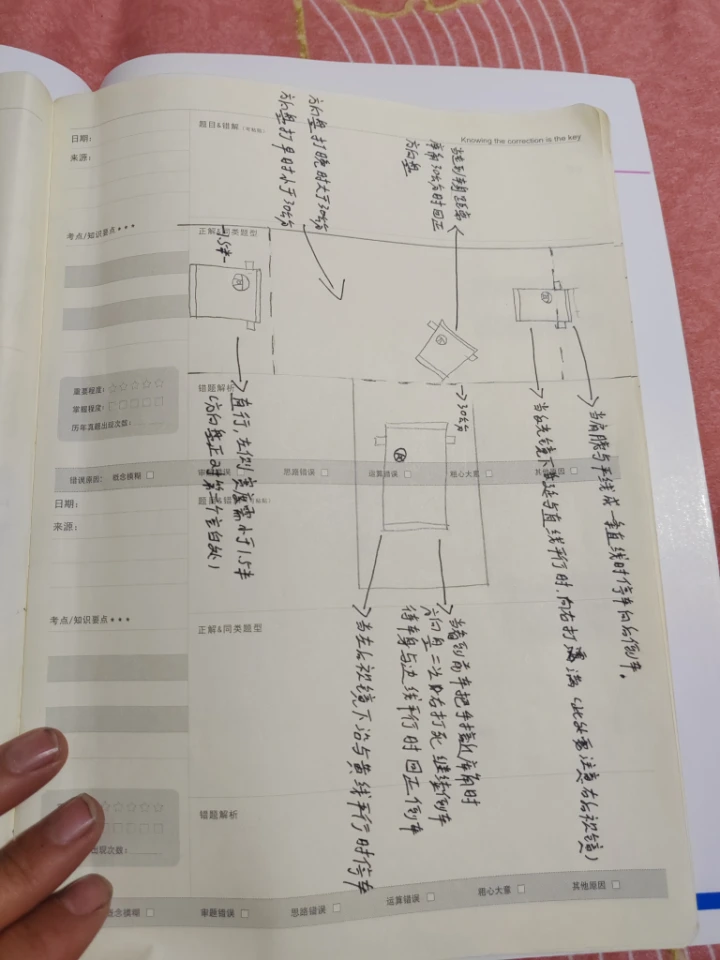 Knowing the correction is the key
日期：
题目&错解（考场版）
来源：
考点/知识要点★★★
正解&同类题型
重要程度：☆☆☆☆☆
掌握程度：□□□□□
历年真题出现次数：
错题解析
错误原因： 概念模糊 □ 思路错误 □ 运算错误 □ 粗心大意 □ 其他原因 □
日期：
来源：
考点/知识要点★★★
正解&同类题型
出现次数：
错题解析
概念模糊 □ 审题错误 □ 思路错误 □ 运算错误 □ 粗心大意 □ 其他原因 □
当肩膀与平线成一条直线时停车向后倒车。
当右后视镜下沿与直线平行时，向右打满（此处需注意右后视镜）
当走到车身距离
库前30公分时回正
方向盘
方向盘打晚时大于30公分
方向盘打早时小于30公分
30公分
当看到前车把手接近库角时
方向盘二次向右打死继续倒车
待车身与边线平行时回正倒车
当左后视镜下沿与黄线平行时停车
1.5米
直行，左侧宽度需小于1.5米
（方向盘正对第一个空白处）